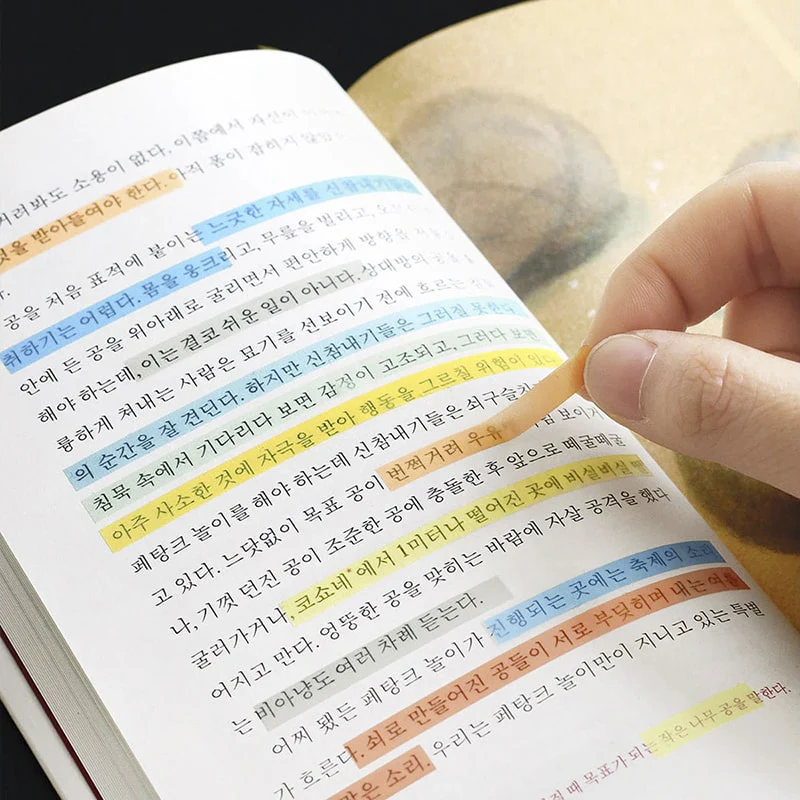 거려봐도 소용이 없다. 이쯤에서 자신의
것을 받아들여야 한다. 아직 폼이 잡히지 않았
다.
공을 처음 표적에 붙이는 느긋한 자세를 신참내기들이
취하기는 어렵다. 몸을 웅크리고, 무릎을 벌리고,
안에 든 공을 위아래로 굴리면서 편안하게 방향을
해야 하는데, 이는 결코 쉬운 일이 아니다. 상대방의 공을
륭하게 쳐내는 사람은 묘기를 선보이기 전에 흐르는
의 순간을 잘 견딘다. 하지만 신참내기들은 그러질 못한다.
침묵 속에서 기다리다 보면 감정이 고조되고, 그러다 보면
아주 사소한 것에 자극을 받아 행동을 그르칠 위험이 있다.
페탕크 놀이를 해야 하는데 신참내기들은 쇠구슬치기
고 있다. 느닷없이 목표 공이 번쩍거려 우유 보이기
나, 기껏 던진 공이 조준한 공에 충돌한 후 앞으로 떼굴떼굴
굴러가거나, 코쇼네*에서 1미터나 떨어진 곳에 비실비실
어지고 만다. 엉뚱한 공을 맞히는 바람에 자살 공격을 했다
는 비아냥도 여러 차례 듣는다.
어찌 됐든 페탕크 놀이가 진행되는 곳에는 축제의 소리
가 흐른다. 쇠로 만들어진 공들이 서로 부딪히며 내는 여름
같은 소리. 우리는 페탕크 놀이만이 지니고 있는 특별
때 목표가 되는 작은 나무 공을 말한다.